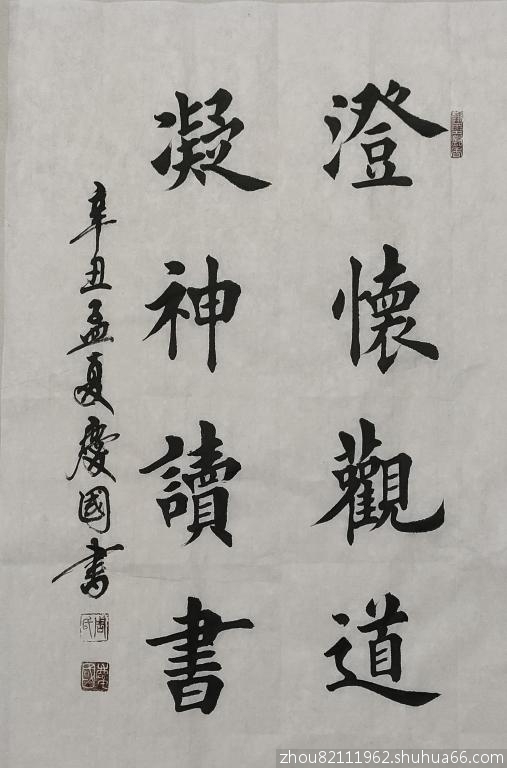 澄懷觀道
凝神讀書
辛丑孟夏慶國書
zhou82111962.shuhua66.com